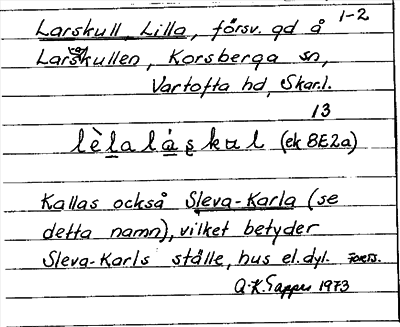 1-2
Larskull, Lilla, försv. gd å
Larskullen, Korsberga sn,
Vartofta hd, Skar.l.
13
lèlaláskul (ek 8E2a)
Kallas också Sleva-Karla (se
detta namn), vilket betyder
Sleva-Karls ställe, hus el.dyl. FORTS.
1973